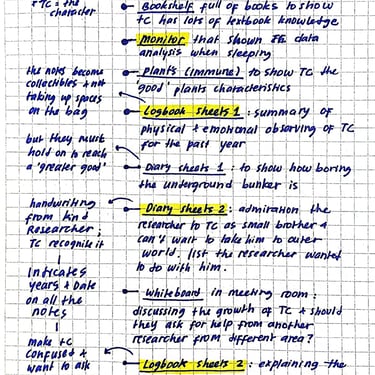 * TC = the
character
Bookshelf full of books to show
TC has lots of textbook knowledge
Monitor that shown data
analysis when sleeping
Plants (immune) to show TC the
'good' plants characteristics
the notes become
collectibles & not
taking up spaces
on the bag
Logbook sheets 1 : summary of
physical & emotional observing of TC
for the past year
but they must
hold on to reach
a 'greater good'
Diary sheets 1 : to show how boring
the underground bunker is
handwriting
from kind
Researcher ;
TC recognise it
Diary sheets 2 : admiration the
researcher to TC as small brother &
can't wait to take him to outer
world. list the researcher wanted
to do with him.
Indicates
years & Date
on all the
notes
Whiteboard in meeting room :
discussing the growth of TC & should
they ask for help from another
researcher from different area?
make TC
confused &
want to ask
Logbook sheets 2 : explaining the